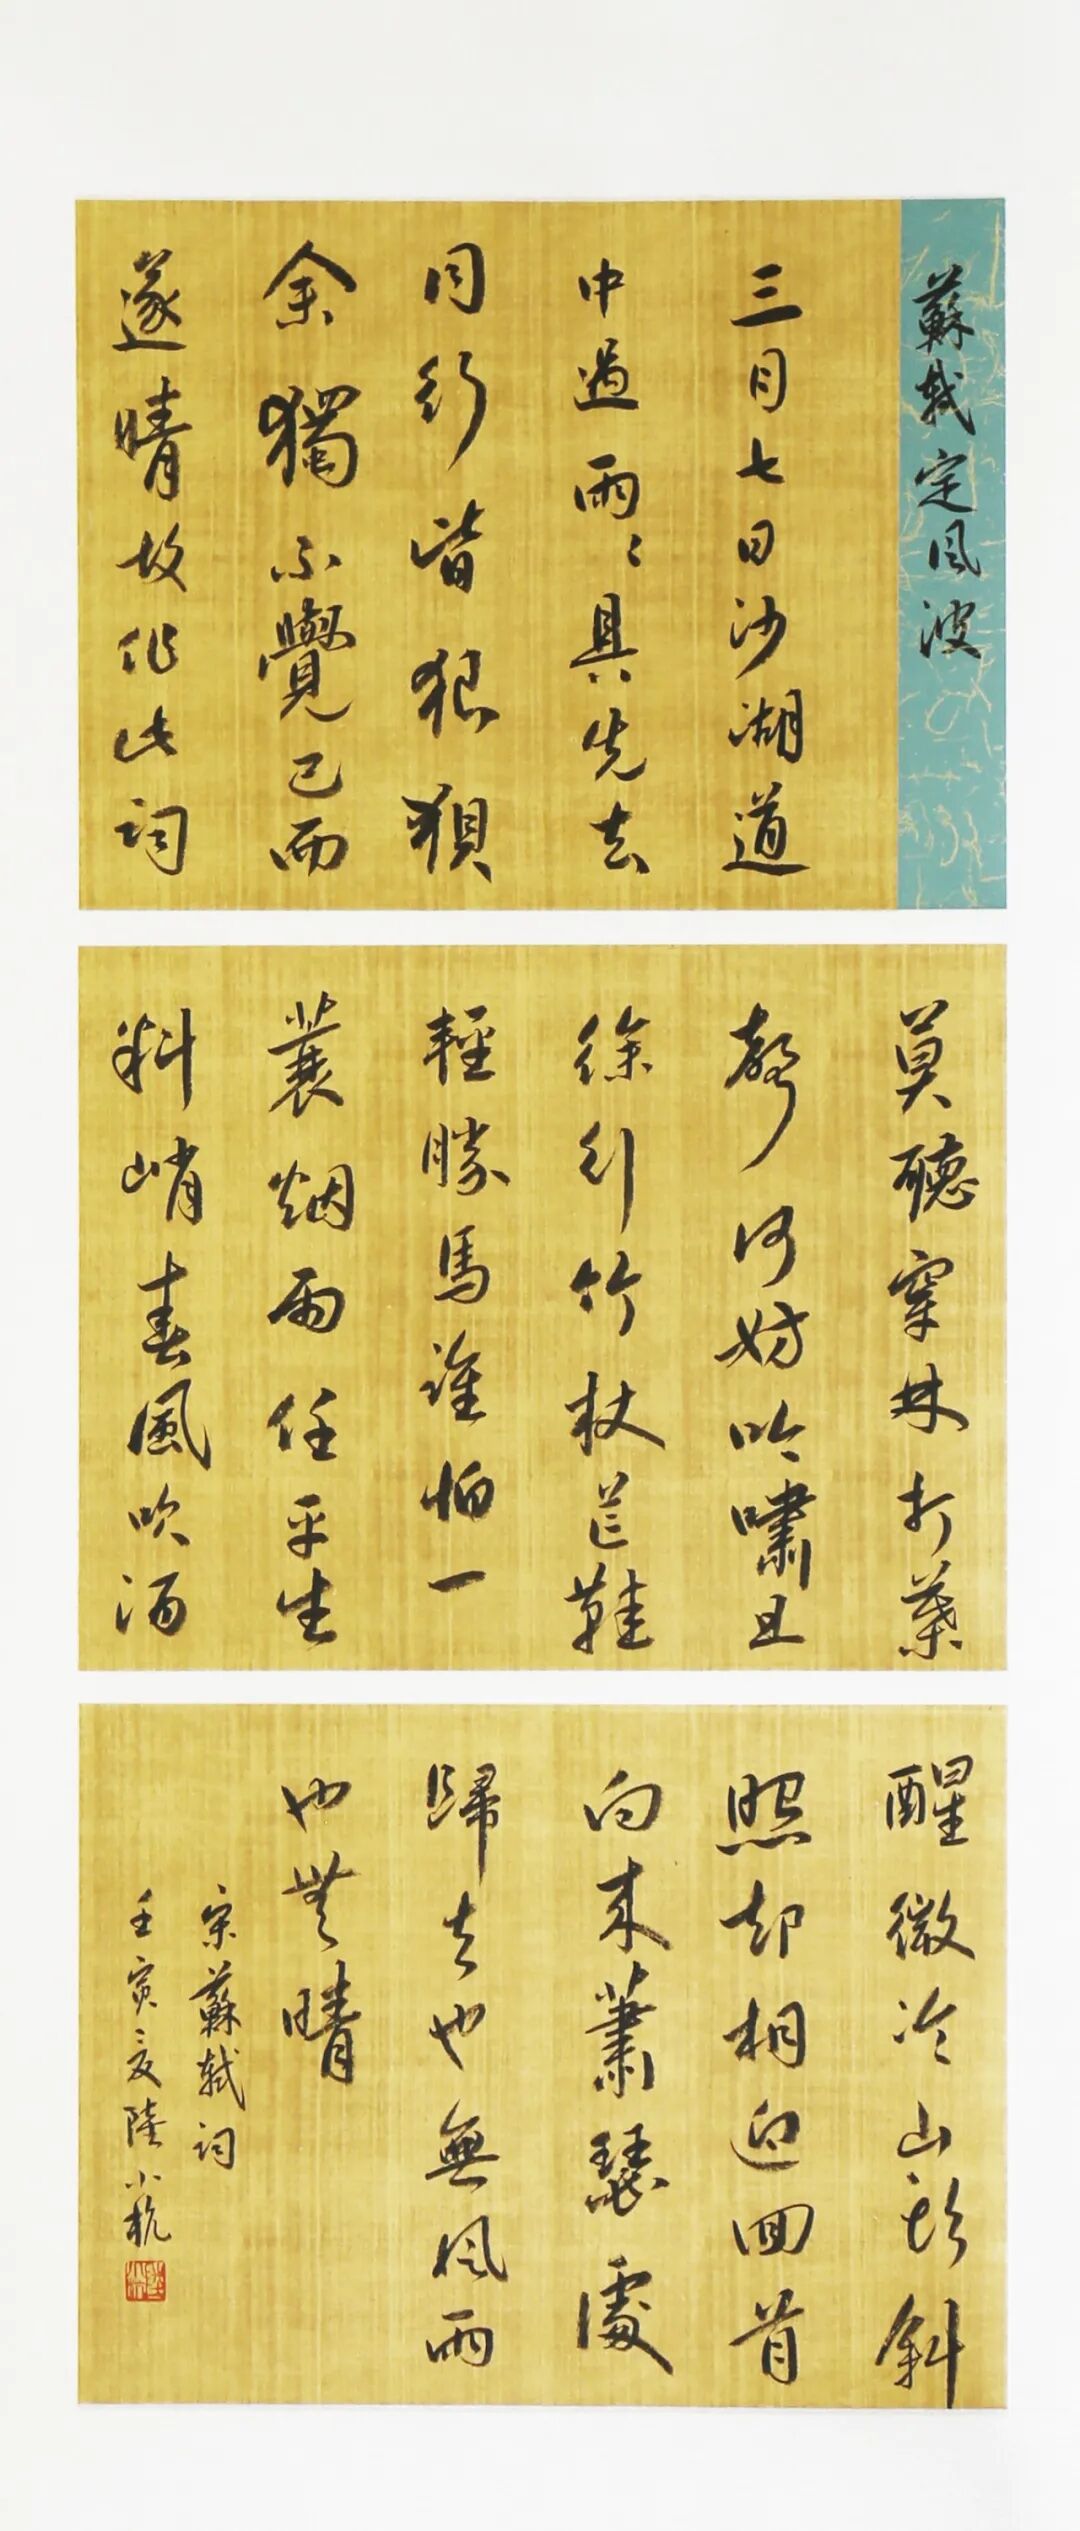 蘇軾定风波
三月七日沙湖道
中遇雨〻具先去
同行皆狼狽
余獨不覺已而
遂晴故作此詞
莫聽穿林打葉
聲何妨吟嘯且
徐行竹杖芒鞋
輕勝馬誰怕一
蓑烟雨任平生
料峭春風吹酒
醒微冷山頭斜
照却相迎回首
向来蕭瑟處
歸去也也無风雨
也無晴
宋蘇軾詞
壬寅之夏陸小杭